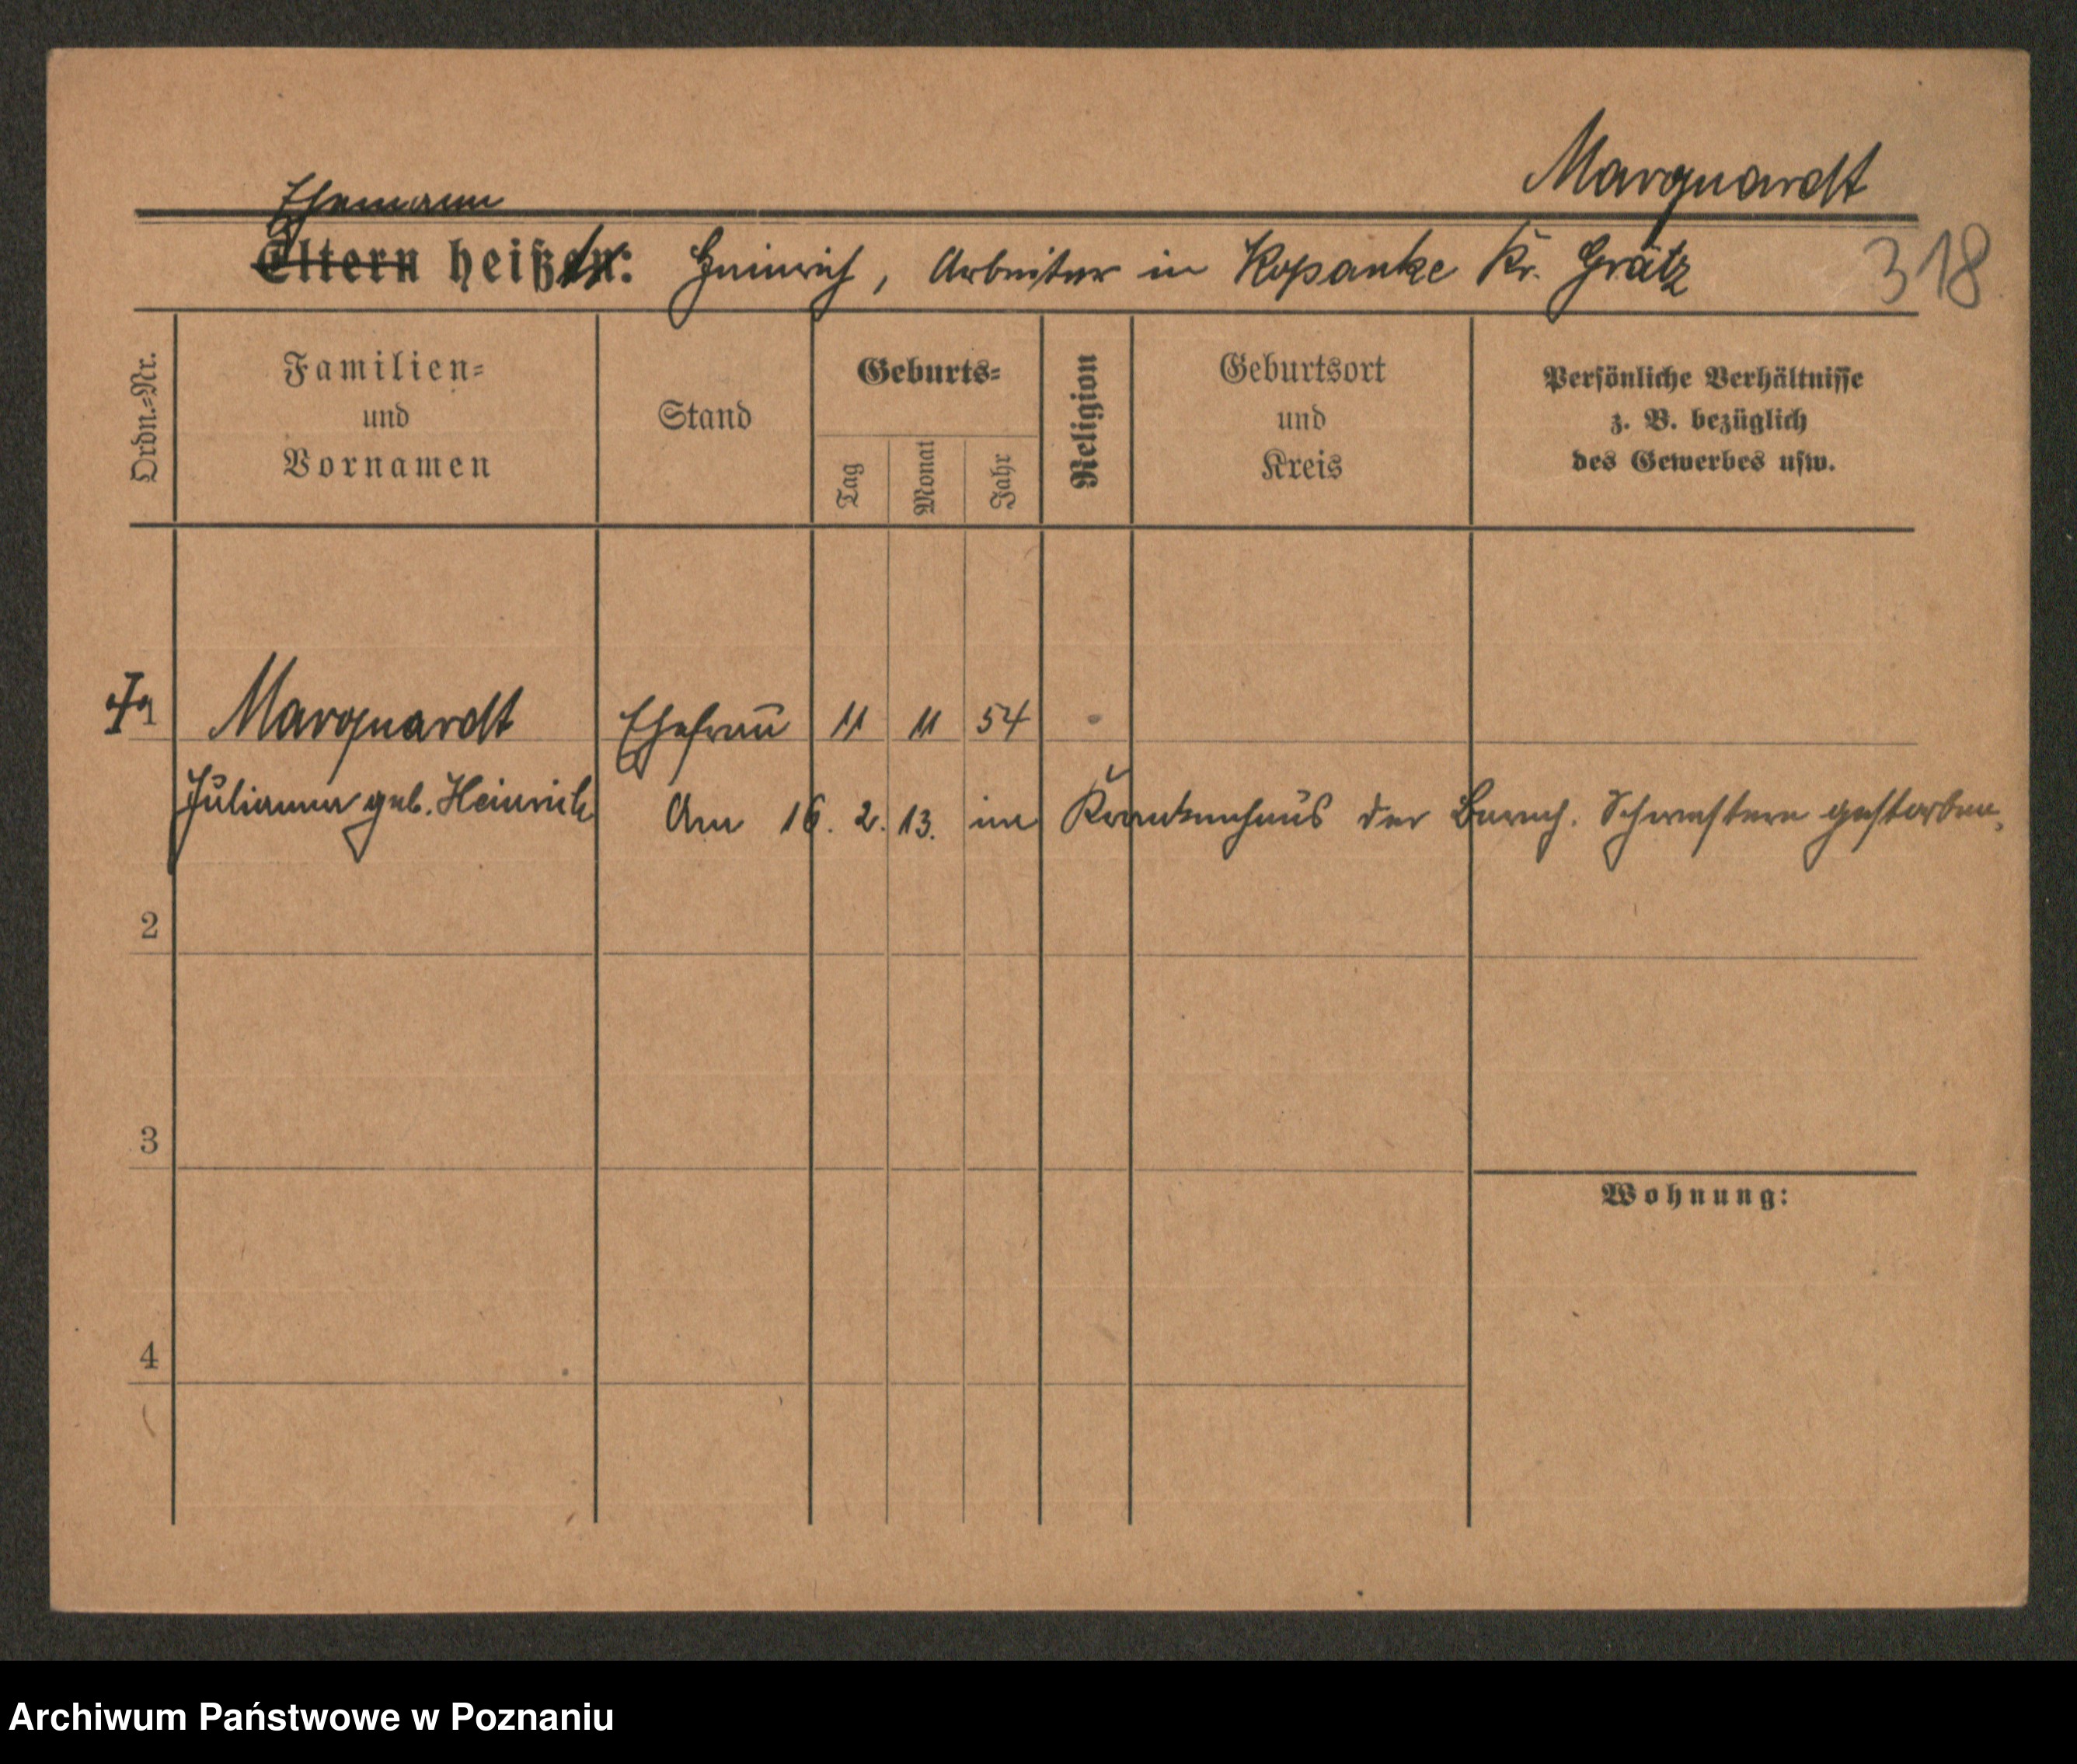 Marquardt
Ehemann
Eltern heißt: Heinrich, Arbeiter in Kopanke Kr. Grätz
318
Ordn.-Nr.
Familien-
und
Vornamen
Stand
Geburts-
Tag
Monat
Jahr
Religion
Geburtsort
und
Kreis
Persönliche Verhältnisse
z. B. bezüglich
des Gewerbes usw.
1 Marquardt Ehefrau 11 11 54
Julianna geb. Heinrich Am 16. 2. 13. im Krankenhaus der Barmh. Schwestern gestorben.
2
3
Wohnung:
4
Archiwum Państwowe w Poznaniu